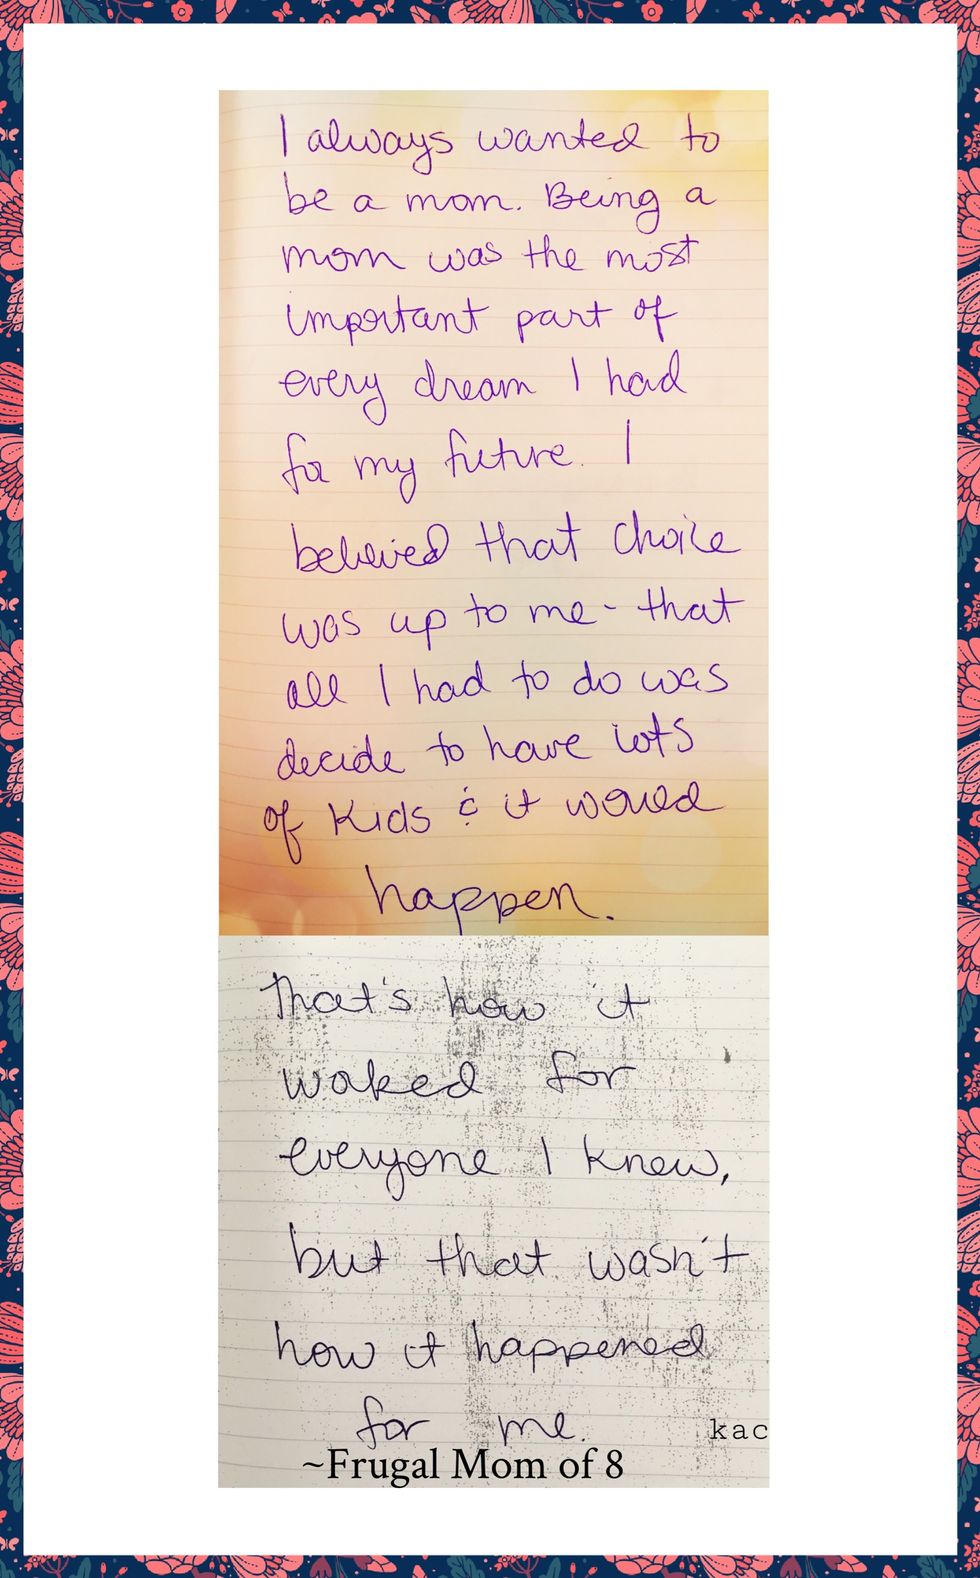 I always wanted to
be a mom. Being a
mom was the most
important part of
every dream I had
for my future. I
believed that choice
was up to me - that
all I had to do was
decide to have lots
of kids & it would
happen.
That's how it
worked for
everyone I knew,
but that wasn't
how it happened
for me.
kac
~Frugal Mom of 8